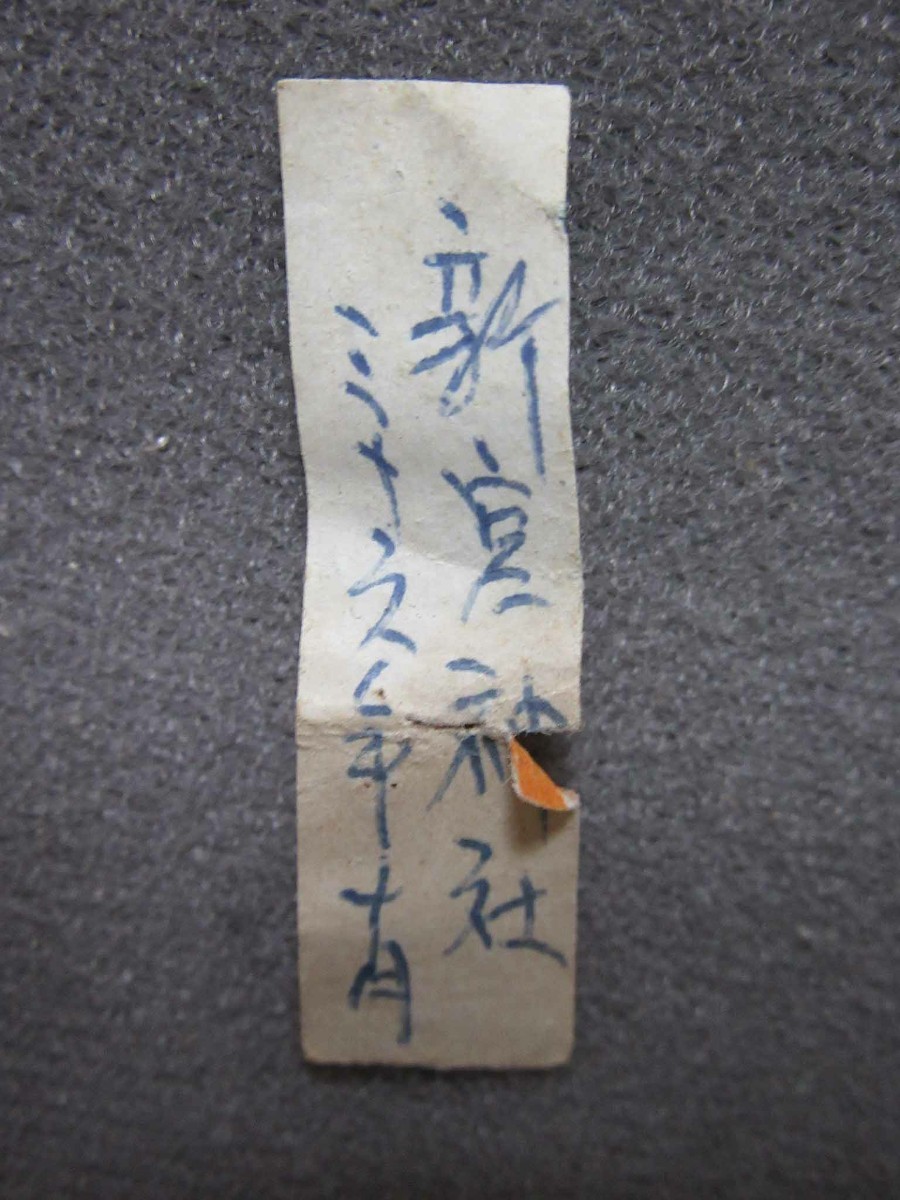 新宮神社
三十六年十月